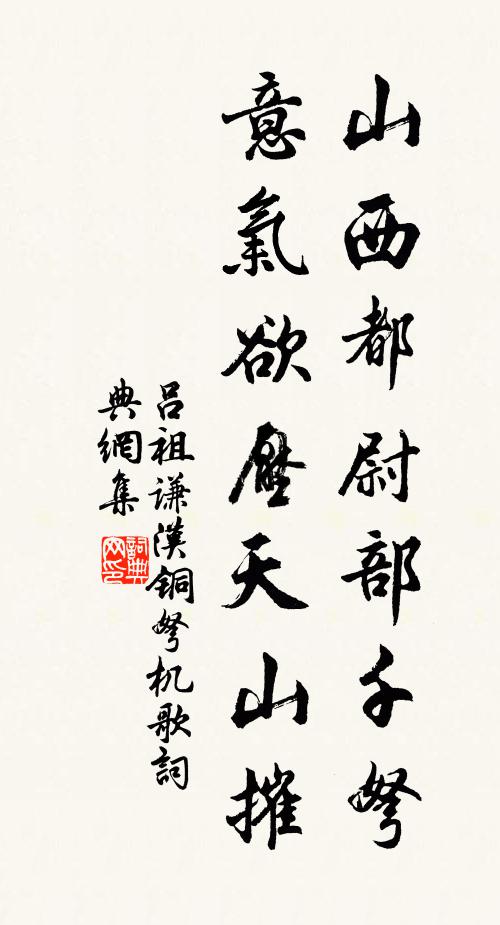 山西都尉部千弩
意氣欲壓天山摧
吕祖谦漢銅弩机歌詞
典網集
詞典
网印